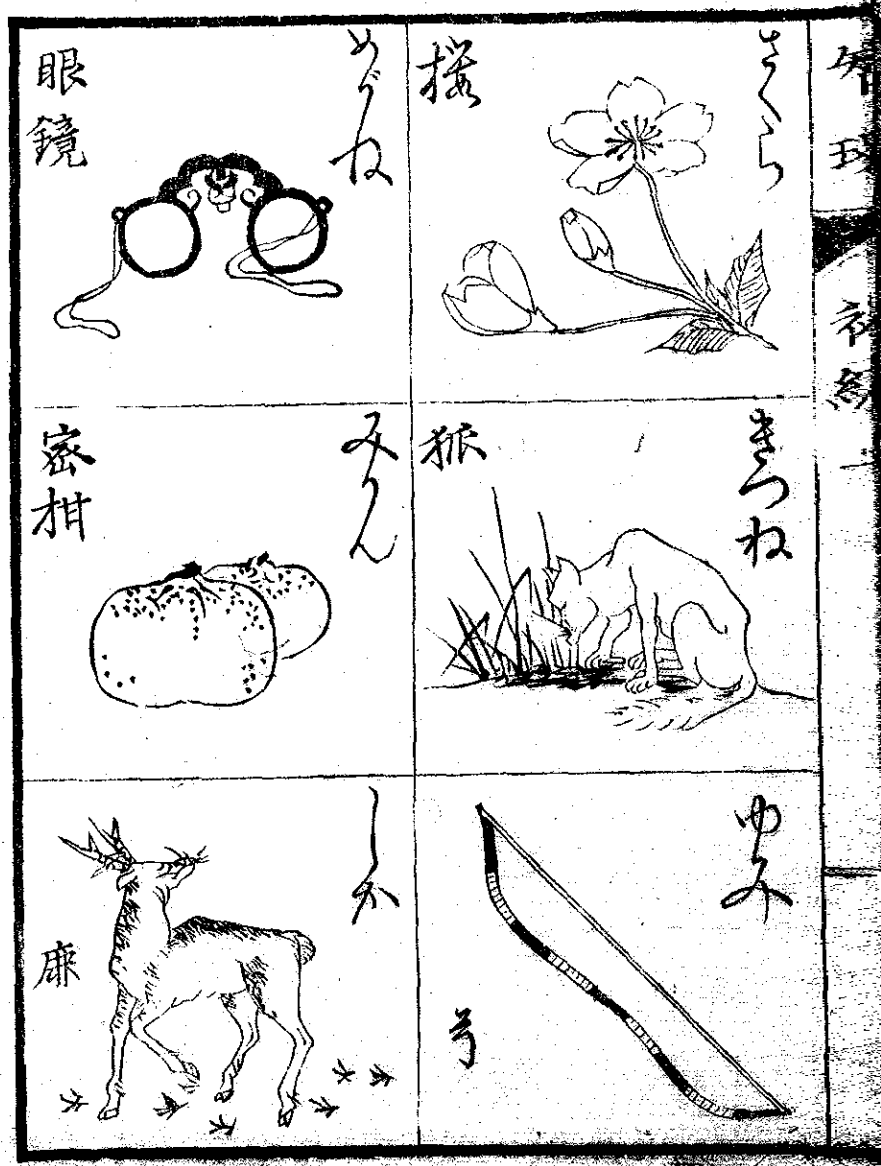 さくら
桜
きつね
狐
ゆみ
弓
めがね
眼鏡
みかん
密柑
しか
鹿